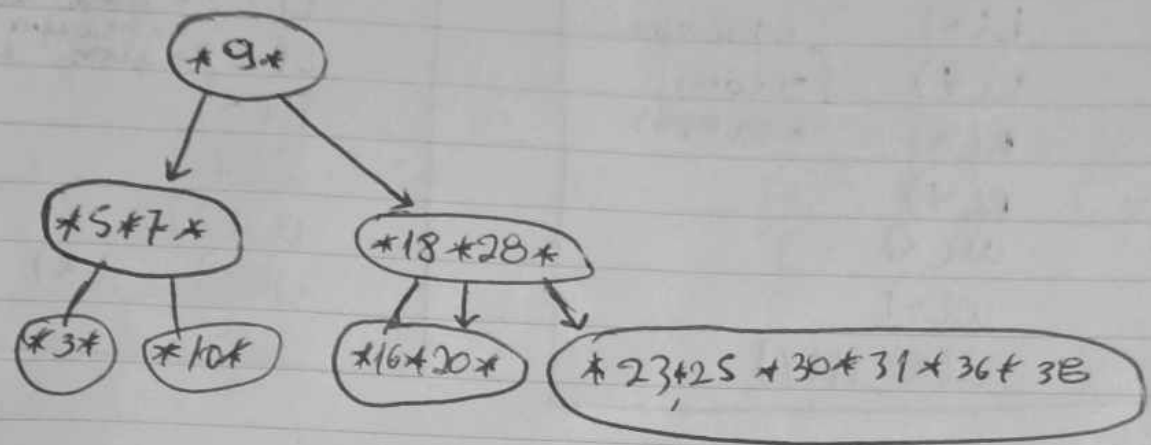 *9*
*5*7*
*18*28*
*3*
*10*
*16*20*
*23*25*30*31*36*38